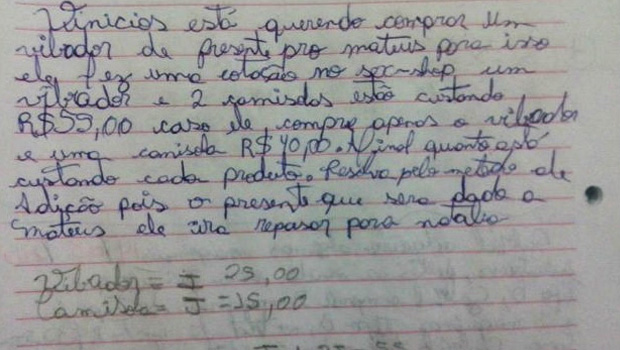 Vinicios está querendo comprar um
vibador de presente pro mateus para isso
ele fez uma cotasão no sex-shop, um
vibrador e 2 camisolas estão custando
R$55,00 caso ele compre apenas o vibador
e uma camisola R$40,00. Afinal quanto está
custando cada produto. Resolva pelo metodo de
Adição pois o presente que sera dado a
mateus ele ira repasar para natalia
Vibador = I 25,00
Camisola = J = 15,00